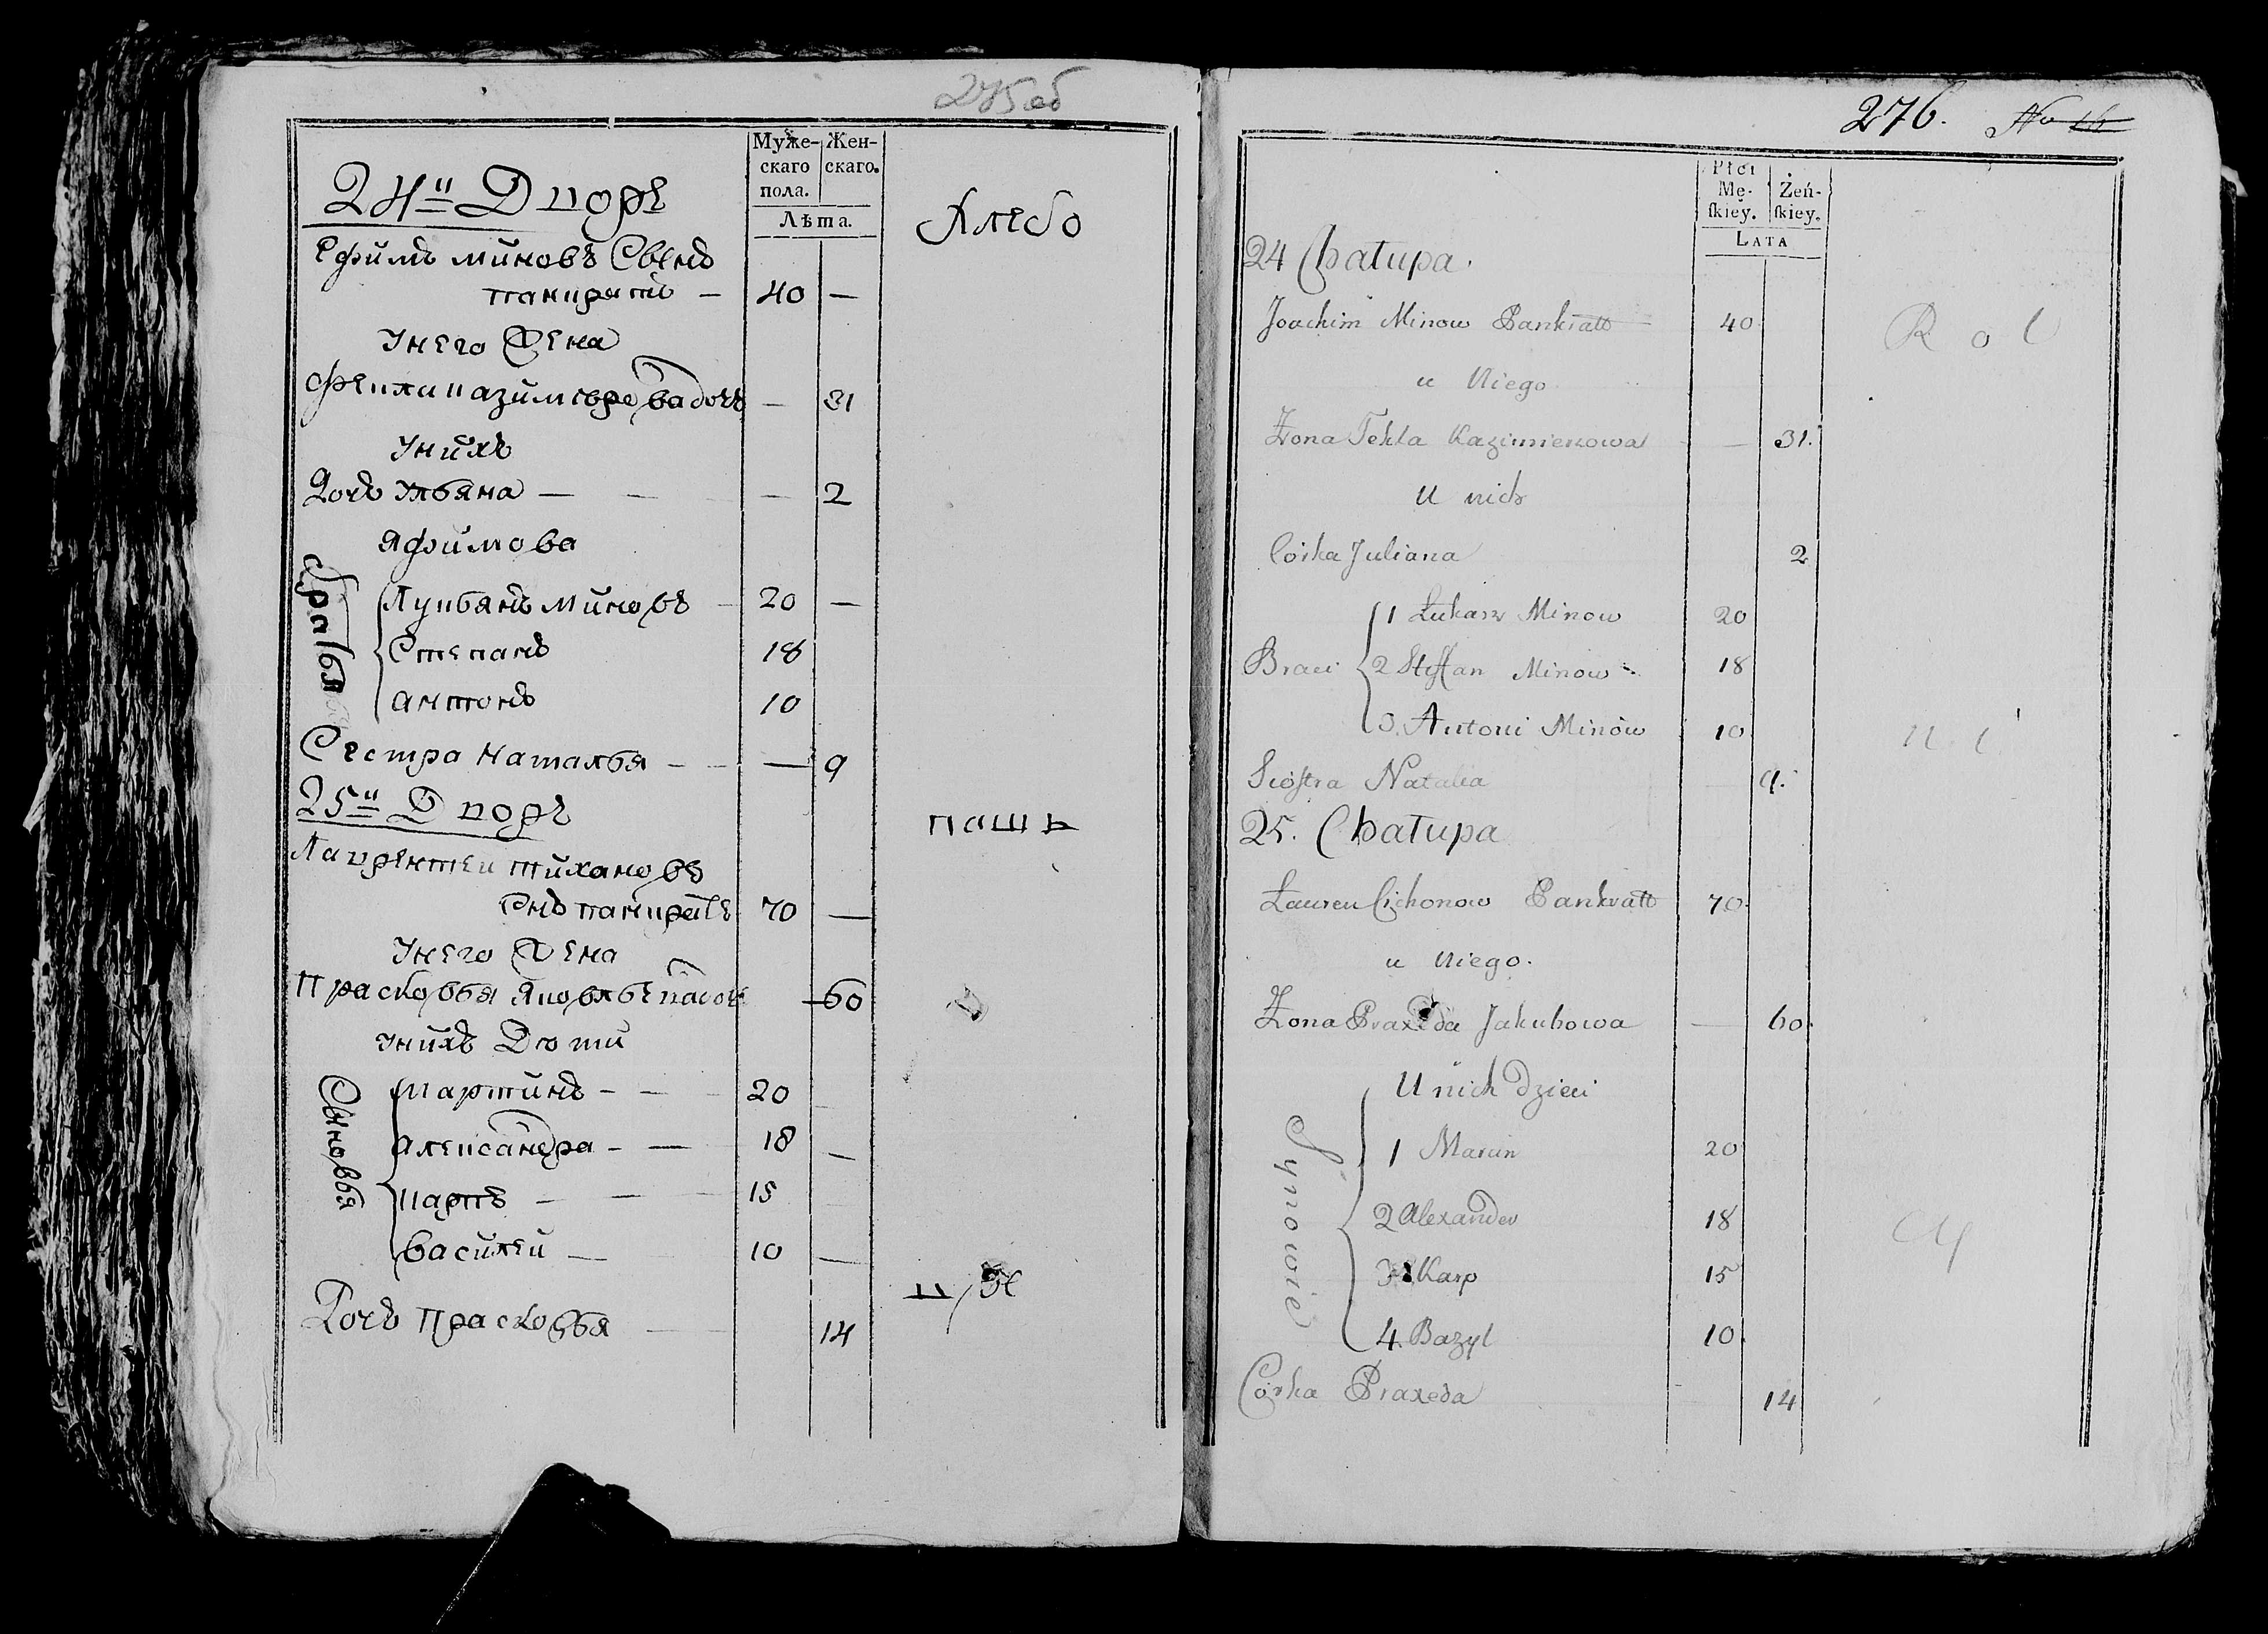 275 об
Муже-
скаго
пола.
Жен-
скаго.
Лѣта.
24й Дворъ
Хлебо
Ефимъ миновъ Сынъ
панкратъ — 40 —
Унего Жена
Фекла казимирова дочь — 31
Унихъ
Дочь Ульяна — — — 2
Яфимова
братья
Лукьянъ миновъ — 20 —
Степанъ 18
антонъ 10
Сестра Наталья — — 9
25й Дворъ
паш
Лаврентеи тихановъ
Снъ панкратъ 70 —
Унего Жена
Прасковья Яковлева дочь 60
Унихъ Дети
Сыновья
мартинъ — — 20
александра — — 18 —
карпъ — — 15
василеи — 10 —
Дочь Прасковья — 14
276. No 16
Płci
Mę-
skiey.
Żeń-
skiey.
LATA
24 Chatupa.
Joachim Minow Pankratt 40
R o l
u Niego
Żona Tekla Kazimierzowa — 31.
U nich
Corka Juliana 2
Braci
1 Łukasz Minow 20
2 Steffan Minow 18
3. Antoni Minow 10
n i
Siostra Natalia — 9.
25. Chatupa
Lauren Cichonow Pankratt 70
u Niego.
Żona Praxeda Jakubowa — 60.
U nich dzieci
Synowie
1 Marcin 20
2 Alexander 18
3 Karp 15
4. Bazyl 10
Córka Praxeda 14